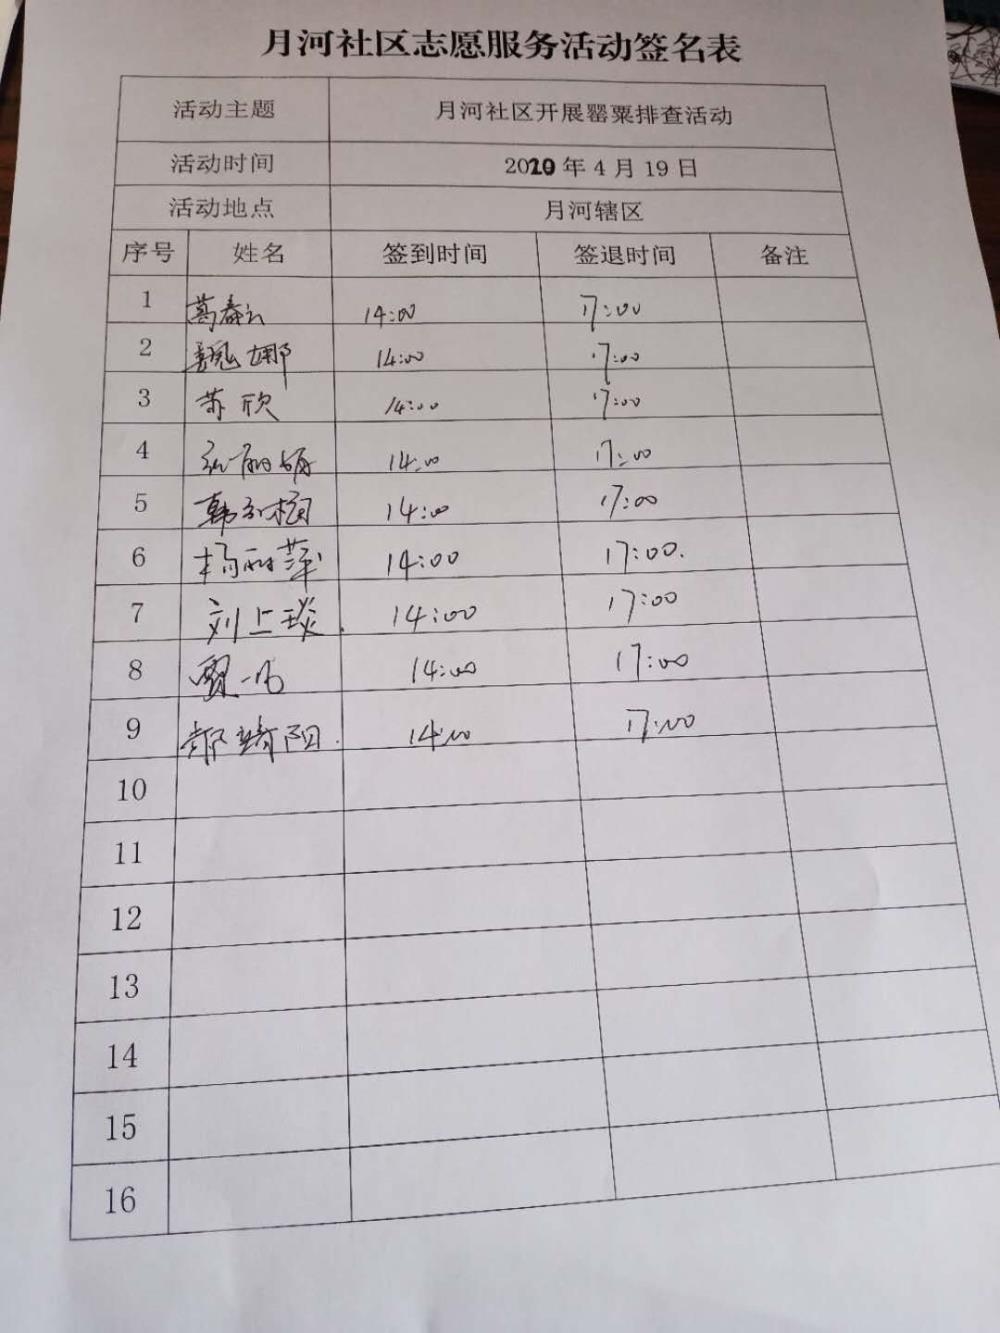 月河社区志愿服务活动签名表
活动主题 月河社区开展罂粟排查活动
活动时间 2020 年 4 月 19 日
活动地点 月河辖区
序号 姓名 签到时间 签退时间 备注
1 葛春云 14:00 17:00
2 魏娜 14:00 17:00
3 苏欣 14:00 17:00
4 14:00 17:00
5 14:00 17:00
6 杨丽萍 14:00 17:00.
7 刘上琰. 14:00 17:00
8 贾一鸣 14:00 17:00
9 郝靖阳. 14:00 17:00
10
11
12
13
14
15
16